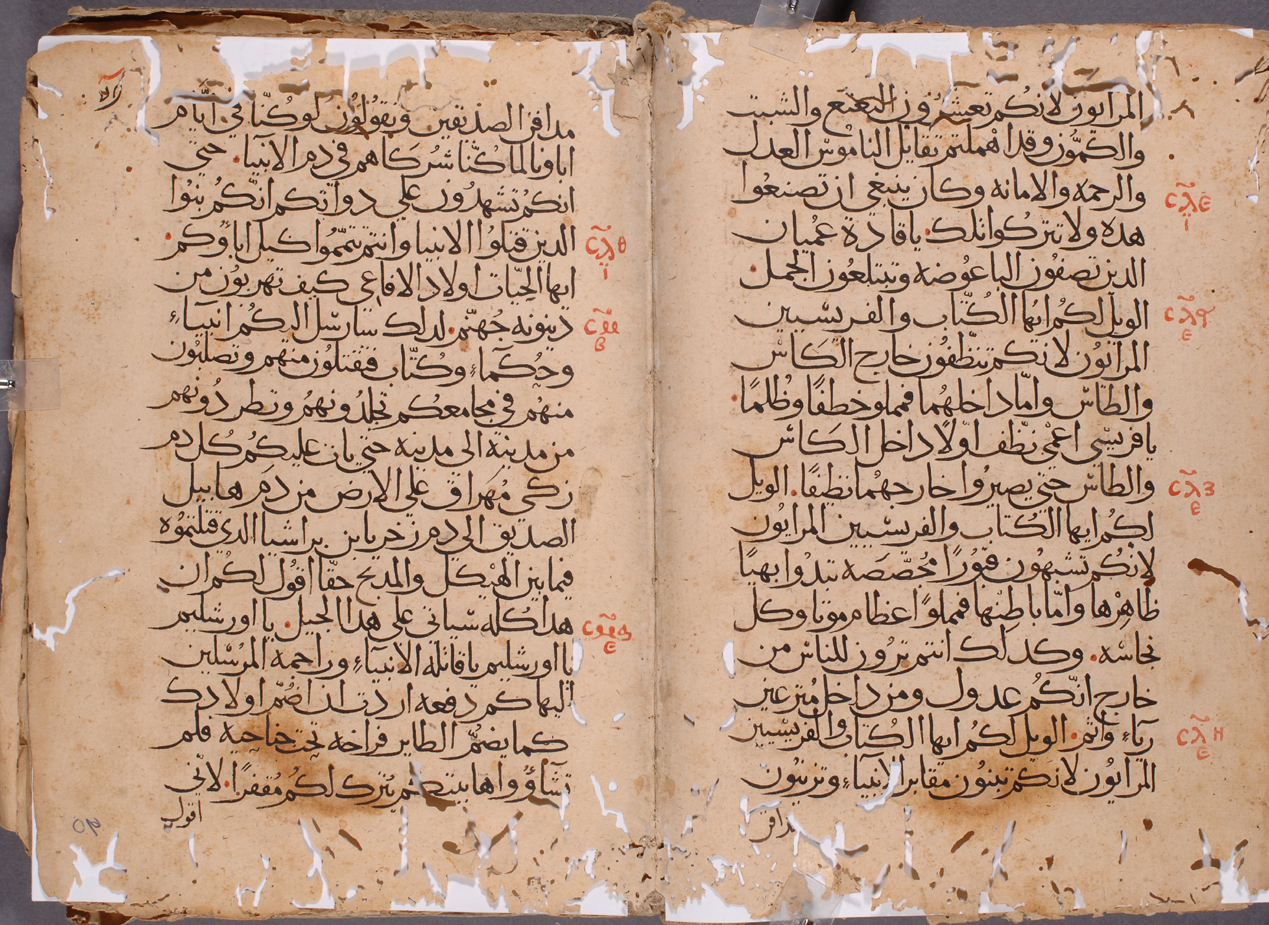 المرايون لانكم تعشرون النعنع والشبت
والكمون وقد اهملتم ثقايل الناموس العدل
والرحمه والامانه وكان ينبغي ان تصنعوا
هده ولا تتركوا تلك. يا قادة عميان
الدين تصفون الباعوضه وتبتلعون الجمل.
الويل لكم ايها الكتاب والفريسيين
المرايون لانكم تنظفون خارج الكاس
والطاس واما داخلهما فمملو خطفا وظلما.
يا فريسي اعمى نظف اولا داخل الكاس
والطاس حتى يصيروا خارجهما نظيفا. الويل
لكم ايها الكتاب والفريسيين المرايون
لانكم تشبهون قبورا مجصصه تبدوا بهيا
ظاهرها واما باطنها فمملو اعظام موتا وكل
نجاسه. وكدلك انتم ترون للناس من
خارج انكم عدول ومن داخل مترعين
رياء واثم. الويل لكم ايها الكتاب والفريسيين
المرايون لانكم تبنون مقابر الانبياء وتزينون
مدافن
ⲤⲖⲈ
ⲤⲖⲊ
Ⲉ
ⲤⲖⲌ
Ⲉ
ⲤⲖⲎ
Ⲉ
مدافن الصديقين وتقولون لو كنا في ايام
اباونا لما كنا شركاهم في دم الانبيا. حتى
انكم تشهدون على دواتكم انكم بنوا
الدين قتلوا الانبيا وانتم تمموا كيل اباوكم.
ايها الحيات اولاد الافاعي كيف تهربون من
دينونه جهنم. لدلك سارسل اليكم انبياء
وحكماء وكتاب فتقتلون منهم وتصلبون
منهم في مجامعكم تجلدونهم وتطردونهم
من مدينة الى مدينه حتى ياتي عليكم كل دم
زكي مهراق على الارض من دم هابيل
الصديق الى دم زخريا بن براشيا الدي قتلتموه
فيما بين الهيكل والمدبح حقا اقول لكم ان
هدا كله سياتي على هدا الجيل. يا اورشليم
يا اورشليم يا قاتله الانبياء وراجمه المرسلين
اليها كم دفعه اردت ان اضم اولادك
كما يضم الطاير فراخه تحت جناحيه فلم
تشاؤوا ها بيتكم يترك لكم مقفرا. لاني
اقول
ⲤⲖⲐ
ⲤⲘ
Ⲃ
ⲤⲘⲀ
Ⲉ